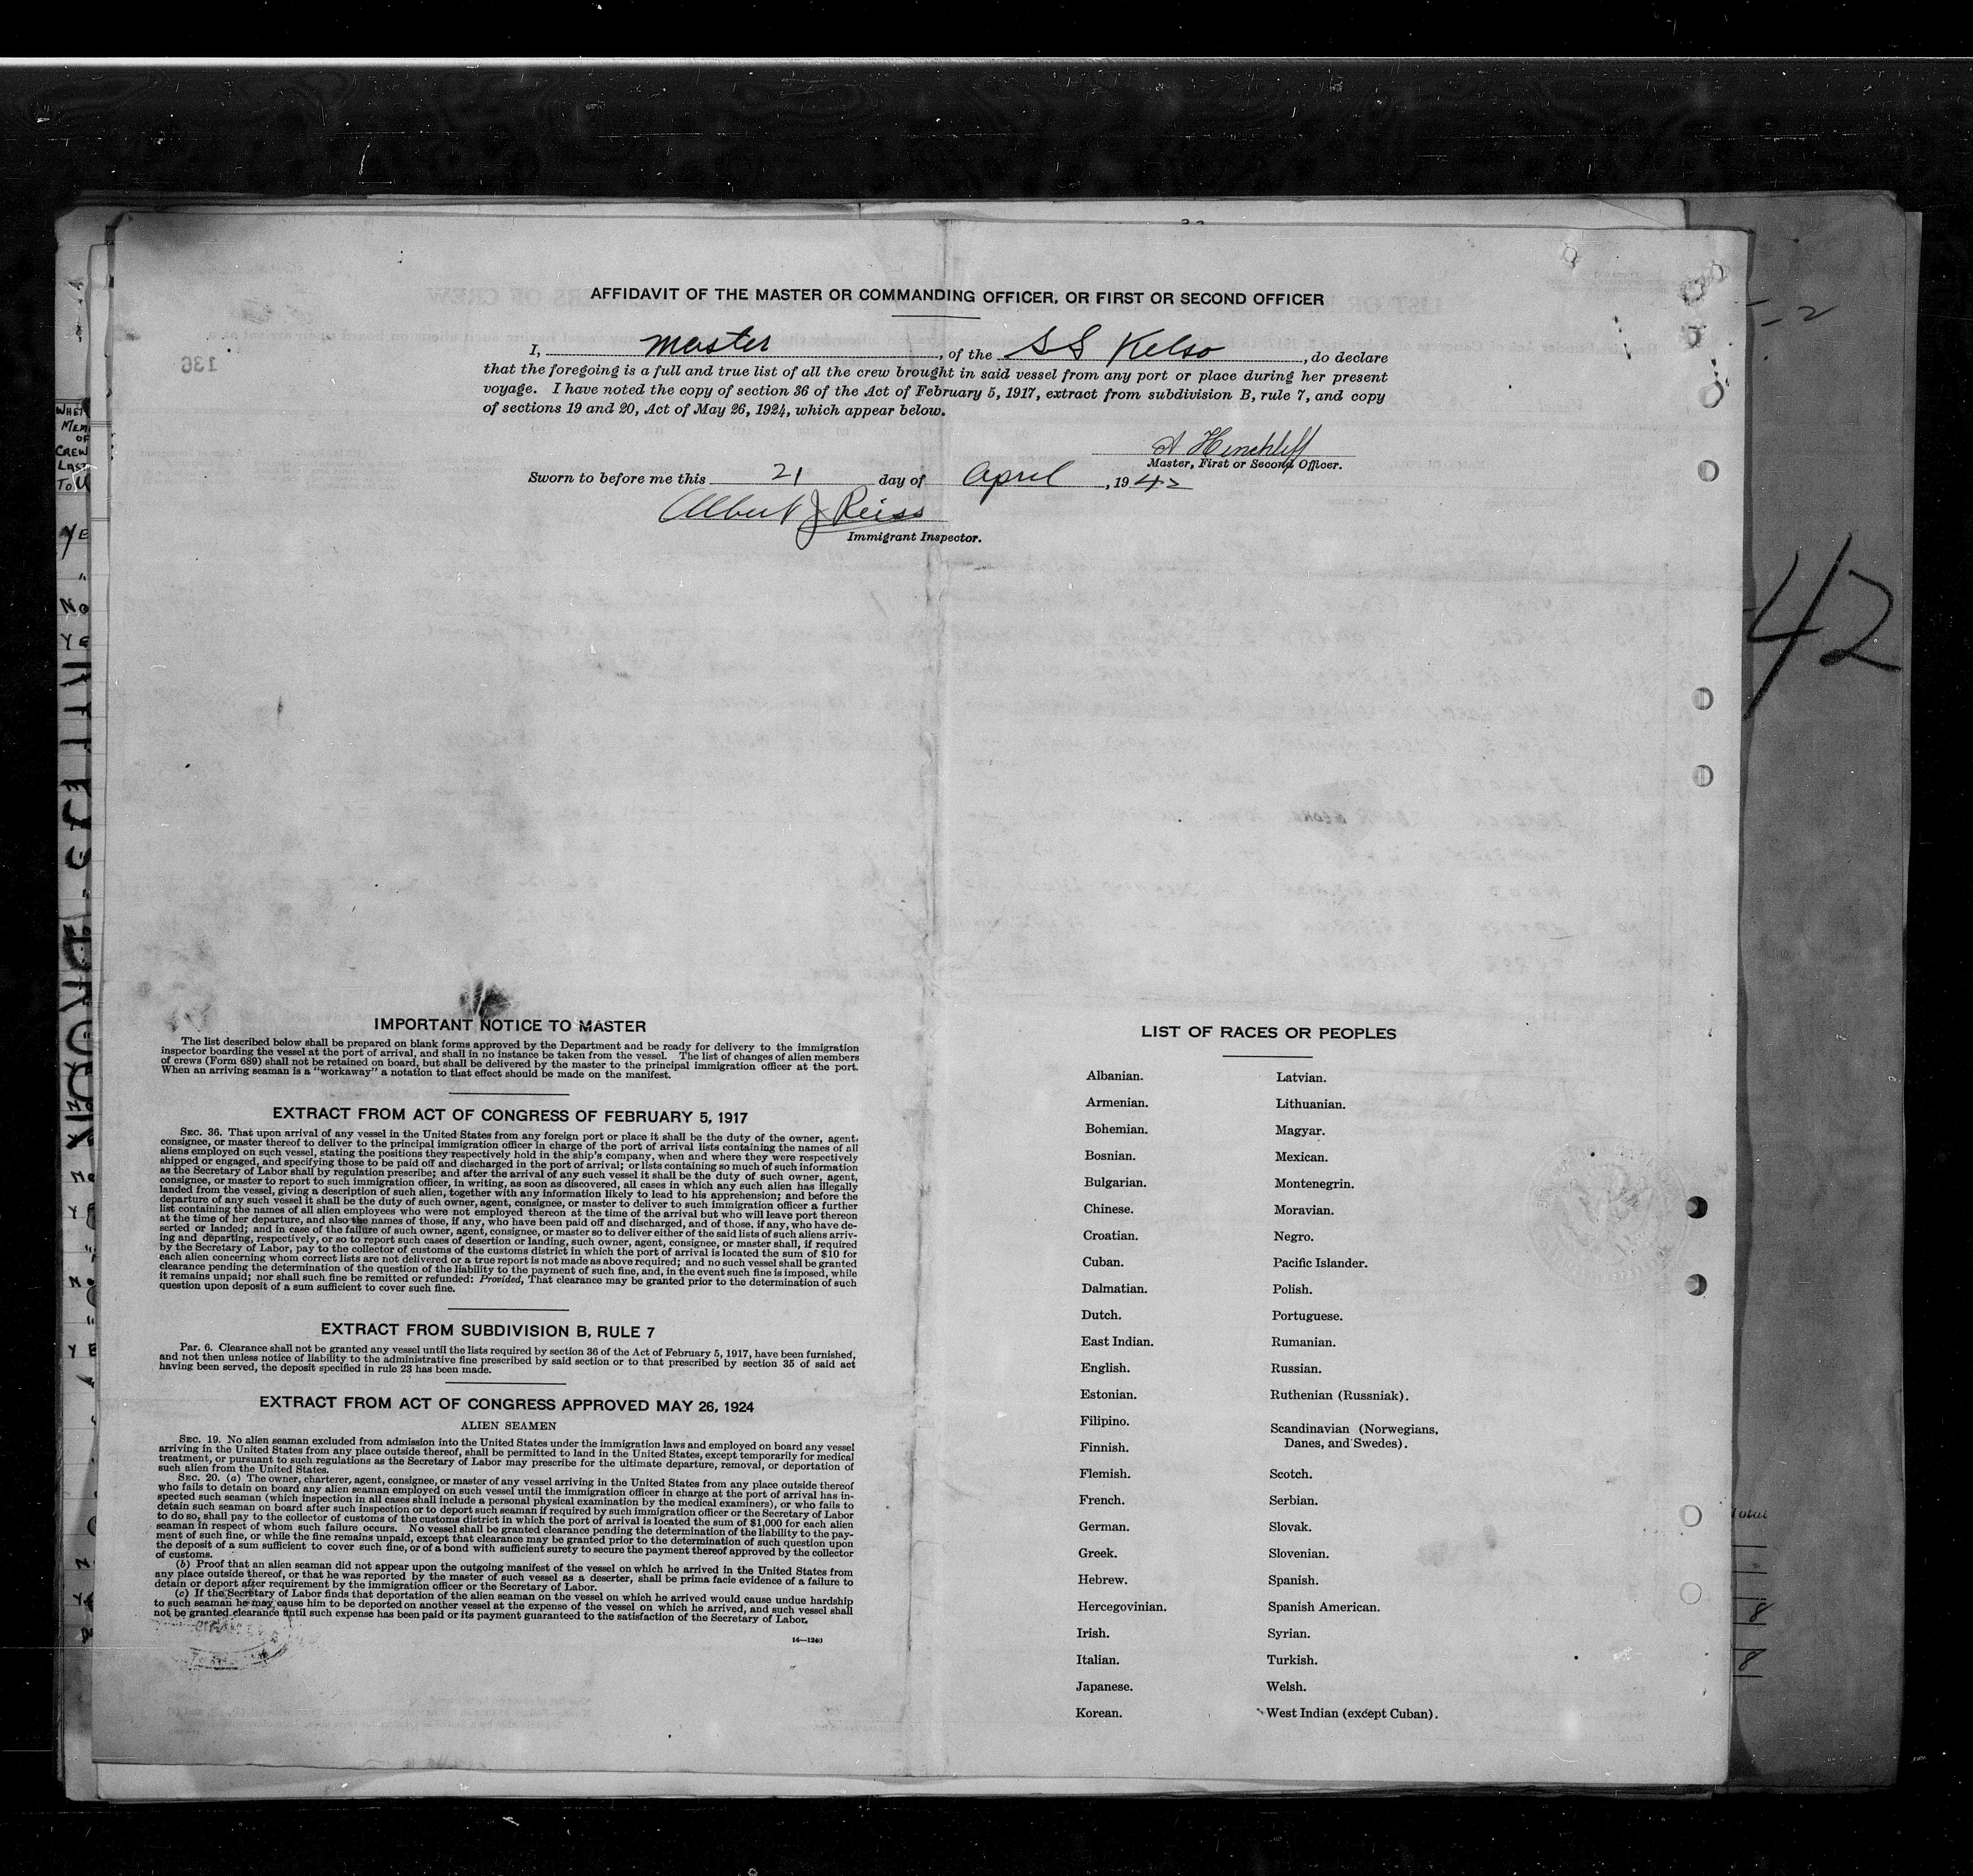 AFFIDAVIT OF THE MASTER OR COMMANDING OFFICER, OR FIRST OR SECOND OFFICER
I, Master, of the SS Kelso, do declare
that the foregoing is a full and true list of all the crew brought in said vessel from any port or place during her present
voyage. I have noted the copy of section 36 of the Act of February 5, 1917, extract from subdivision B, rule 7, and copy
of sections 19 and 20, Act of May 26, 1924, which appear below.
A Hinchliff
Master, First or Second Officer.
Sworn to before me this 21 day of April, 1942
Albert J Reiss
Immigrant Inspector.
42
136
IMPORTANT NOTICE TO MASTER
The list described below shall be prepared on blank forms approved by the Department and be ready for delivery to the immigration
inspector boarding the vessel at the port of arrival, and shall in no instance be taken from the vessel. The list of changes of alien members
of crews (Form 689) shall not be retained on board, but shall be delivered by the master to the principal immigration officer at the port.
When an arriving seaman is a "workaway" a notation to that effect should be made on the manifest.
EXTRACT FROM ACT OF CONGRESS OF FEBRUARY 5, 1917
SEC. 36. That upon arrival of any vessel in the United States from any foreign port or place it shall be the duty of the owner, agent,
consignee, or master thereof to deliver to the principal immigration officer in charge of the port of arrival lists containing the names of all
aliens employed on such vessel, stating the positions they respectively hold in the ship's company, when and where they were respectively
shipped or engaged, and specifying those to be paid off and discharged in the port of arrival; or lists containing so much of such information
as the Secretary of Labor shall by regulation prescribe; and after the arrival of any such vessel it shall be the duty of such owner, agent,
consignee, or master to report to such immigration officer, in writing, as soon as discovered, all cases in which any such alien has illegally
landed from the vessel, giving a description of such alien, together with any information likely to lead to his apprehension; and before the
departure of any such vessel it shall be the duty of such owner, agent, consignee, or master to deliver to such immigration officer a further
list containing the names of all alien employees who were not employed thereon at the time of the arrival but who will leave port thereon
at the time of her departure, and also the names of those, if any, who have been paid off and discharged, and of those, if any, who have de-
serted or landed; and in case of the failure of such owner, agent, consignee, or master so to deliver either of the said lists of such aliens arriv-
ing and departing, respectively, or so to report such cases of desertion or landing, such owner, agent, consignee, or master shall, if required
by the Secretary of Labor, pay to the collector of customs of the customs district in which the port of arrival is located the sum of $10 for
each alien concerning whom correct lists are not delivered or a true report is not made as above required; and no such vessel shall be granted
clearance pending the determination of the question of the liability to the payment of such fine, and, in the event such fine is imposed, while
it remains unpaid; nor shall such fine be remitted or refunded: Provided, That clearance may be granted prior to the determination of such
question upon deposit of a sum sufficient to cover such fine.
EXTRACT FROM SUBDIVISION B, RULE 7
Par. 6. Clearance shall not be granted any vessel until the lists required by section 36 of the Act of February 5, 1917, have been furnished,
and not then unless notice of liability to the administrative fine prescribed by said section or to that prescribed by section 35 of said act
having been served, the deposit specified in rule 23 has been made.
EXTRACT FROM ACT OF CONGRESS APPROVED MAY 26, 1924
ALIEN SEAMEN
SEC. 19. No alien seaman excluded from admission into the United States under the immigration laws and employed on board any vessel
arriving in the United States from any place outside thereof, shall be permitted to land in the United States, except temporarily for medical
treatment, or pursuant to such regulations as the Secretary of Labor may prescribe for the ultimate departure, removal, or deportation of
such alien from the United States.
SEC. 20. (a) The owner, charterer, agent, consignee, or master of any vessel arriving in the United States from any place outside thereof
who fails to detain on board any alien seaman employed on such vessel until the immigration officer in charge at the port of arrival has in-
spected such seaman (which inspection in all cases shall include a personal physical examination by the medical examiners), or who fails to
detain such seaman on board after such inspection or to deport such seaman if required by such immigration officer or the Secretary of Labor
to do so, shall pay to the collector of customs of the customs district in which the port of arrival is located the sum of $1,000 for each alien
seaman in respect of whom such failure occurs. No vessel shall be granted clearance pending the determination of the liability to the pay-
ment of such fine, or while the fine remains unpaid, except that clearance may be granted prior to the determination of such question upon
the deposit of a sum sufficient to cover such fine, or of a bond with sufficient surety to secure the payment thereof approved by the collector
of customs.
(b) Proof that an alien seaman did not appear upon the outgoing manifest of the vessel on which he arrived in the United States from
any place outside thereof, or that he was reported by the master of such vessel as a deserter, shall be prima facie evidence of a failure to
detain or deport after requirement by the immigration officer or the Secretary of Labor.
(c) If the Secretary of Labor finds that deportation of the alien seaman on the vessel on which he arrived would cause undue hardship
to such seaman he may cause him to be deported on another vessel at the expense of the vessel on which he arrived, and such vessel shall
not be granted clearance until such expense has been paid or its payment guaranteed to the satisfaction of the Secretary of Labor.
14—1240
LIST OF RACES OR PEOPLES
Albanian.
Armenian.
Bohemian.
Bosnian.
Bulgarian.
Chinese.
Croatian.
Cuban.
Dalmatian.
Dutch.
East Indian.
English.
Estonian.
Filipino.
Finnish.
Flemish.
French.
German.
Greek.
Hebrew.
Hercegovinian.
Irish.
Italian.
Japanese.
Korean.
Latvian.
Lithuanian.
Magyar.
Mexican.
Montenegrin.
Moravian.
Negro.
Pacific Islander.
Polish.
Portuguese.
Rumanian.
Russian.
Ruthenian (Russniak).
Scandinavian (Norwegians,
Danes, and Swedes).
Scotch.
Serbian.
Slovak.
Slovenian.
Spanish.
Spanish American.
Syrian.
Turkish.
Welsh.
West Indian (except Cuban).
Total
8
8